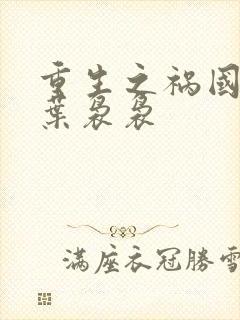 重生之祸国
叶袅袅
满座衣冠勝雪